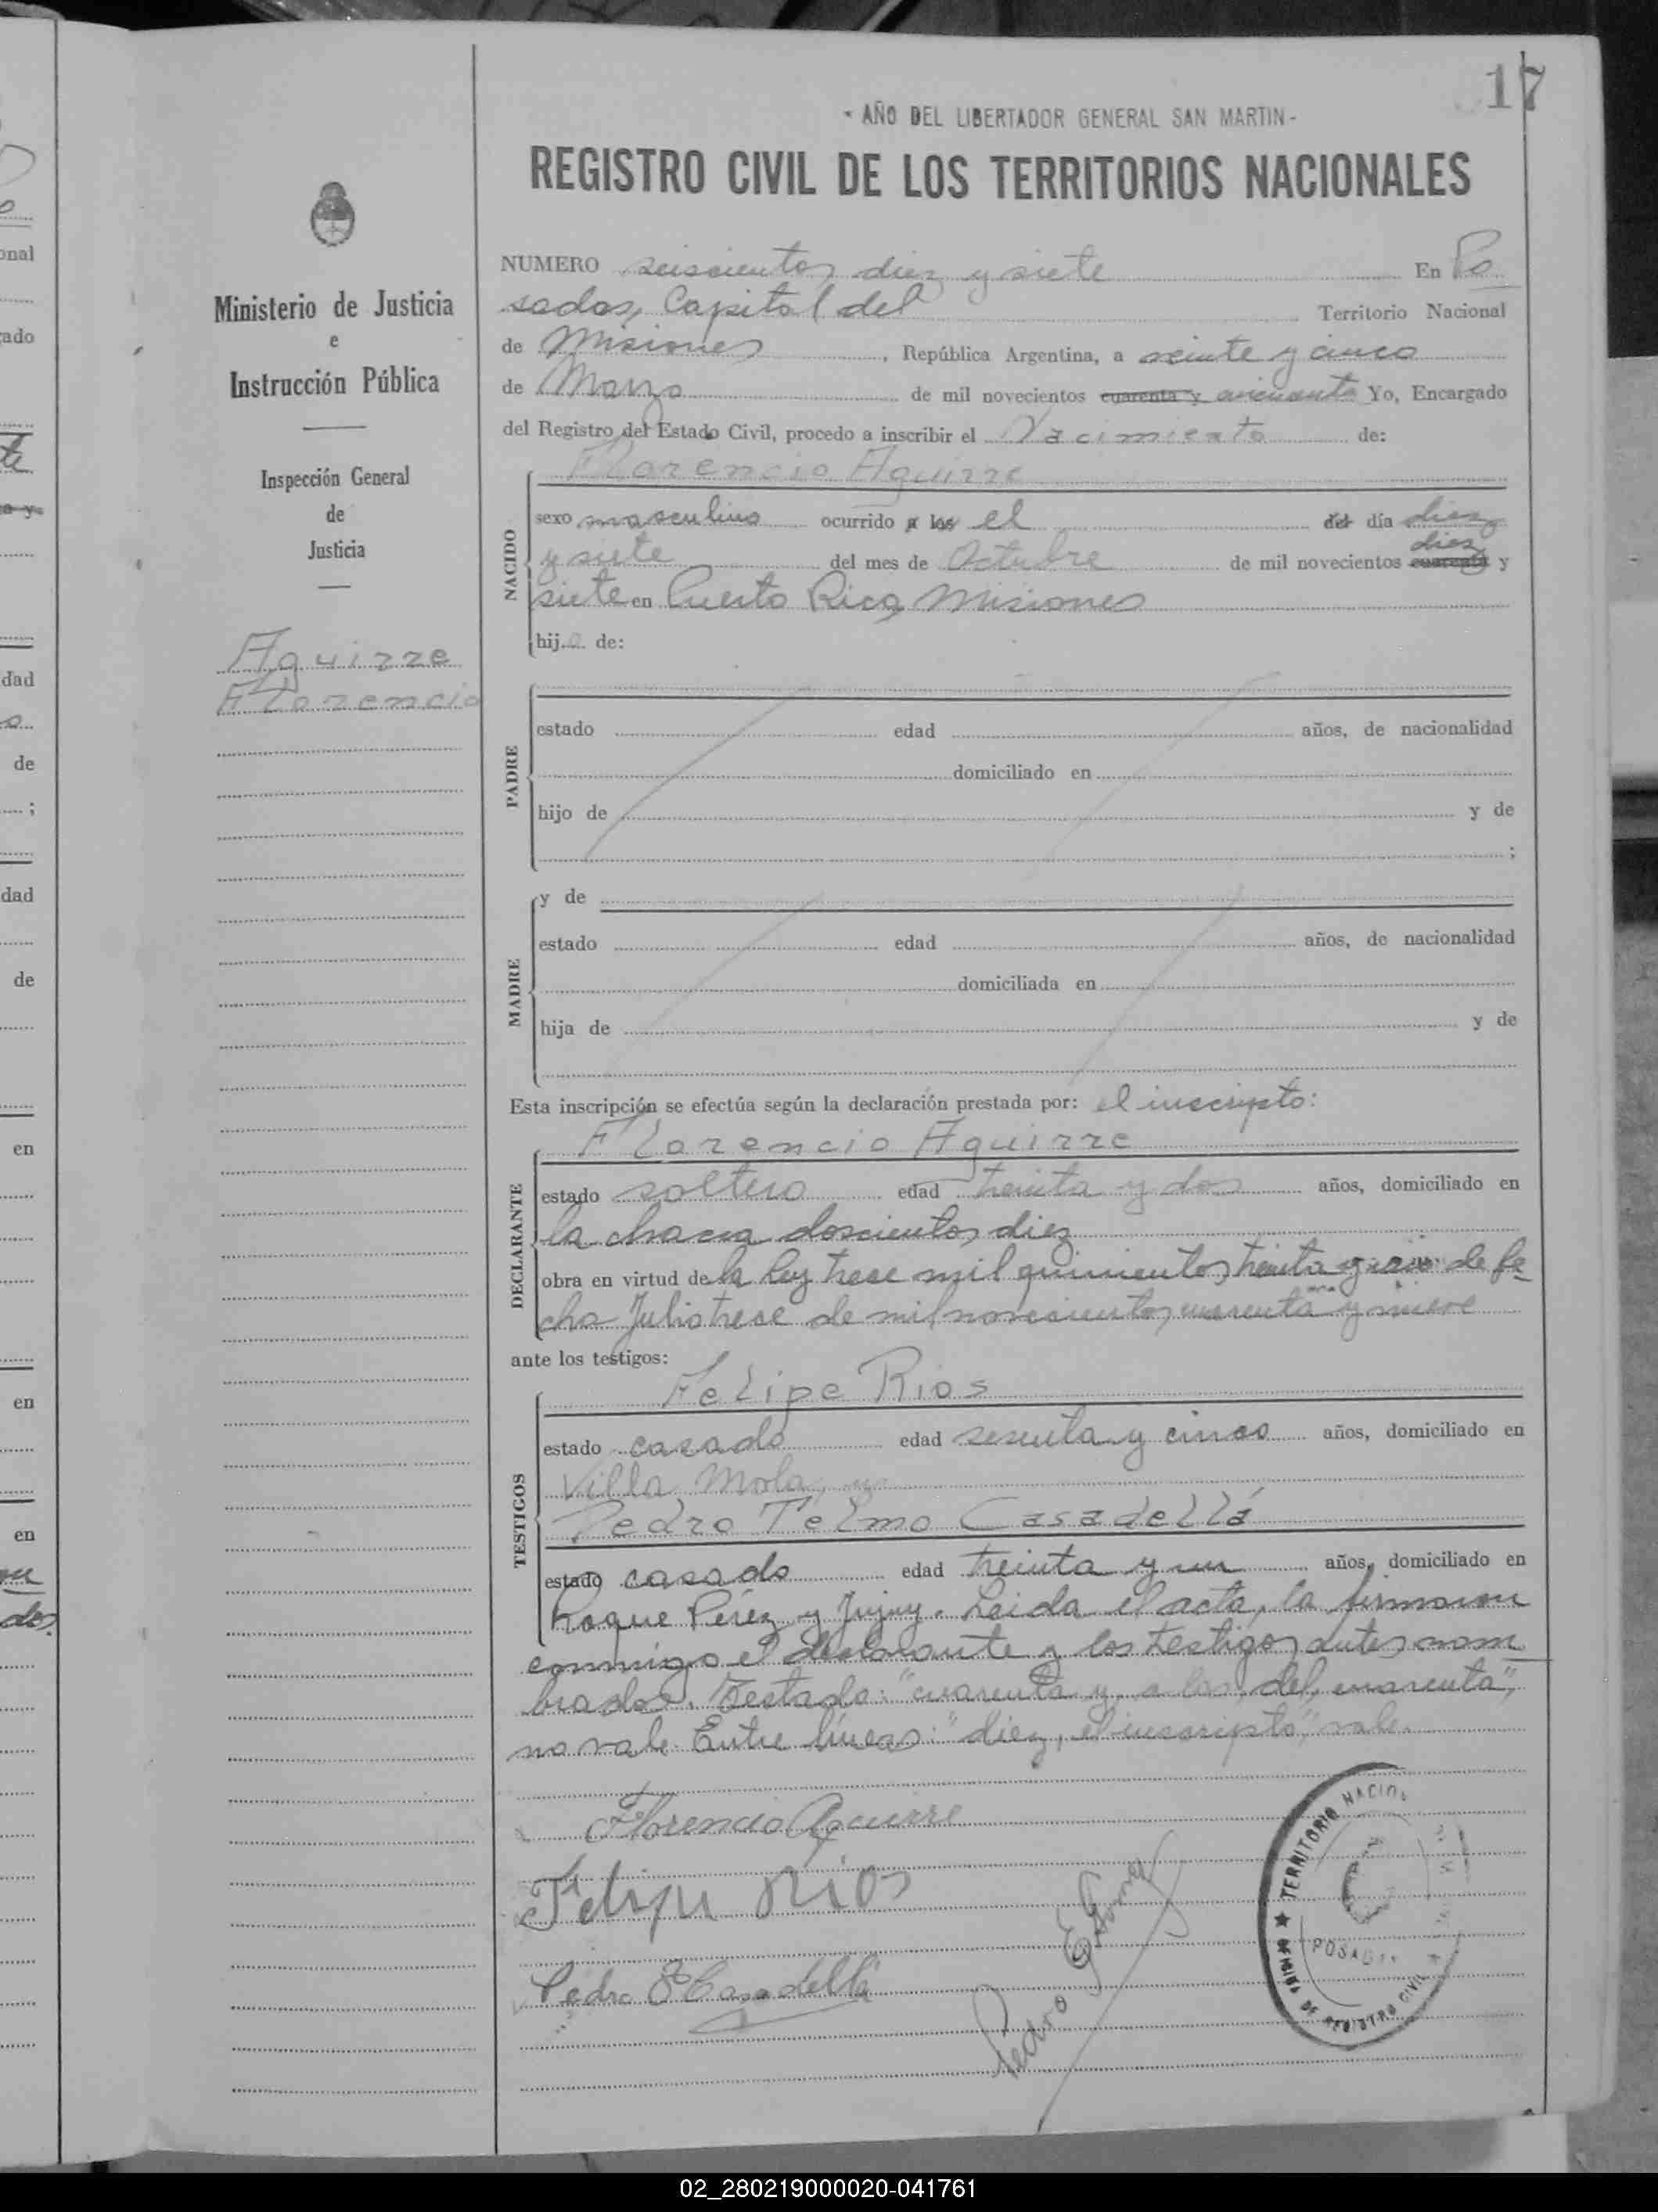 17
- AÑO DEL LIBERTADOR GENERAL SAN MARTIN -
REGISTRO CIVIL DE LOS TERRITORIOS NACIONALES
Ministerio de Justicia
e
Instrucción Pública
Inspección General
de
Justicia
Aguirre
Florencio
NUMERO seiscientos diez y siete En Po
sadas, Capital del Territorio Nacional
de Misiones, República Argentina, a veinte y cinco
de Marzo de mil novecientos cuarenta y cincuenta Yo, Encargado
del Registro del Estado Civil, procedo a inscribir el Nacimiento de:
Florencio Aguirre
NACIDO
sexo masculino ocurrido a las el del día diez
y siete del mes de Octubre de mil novecientos cuarenta diez y
siete en Puerto Rico, Misiones
hijo de:
PADRE
estado edad años, de nacionalidad
domiciliado en
hijo de y de
;
MADRE
y de
estado edad años, de nacionalidad
domiciliada en
hija de y de
Esta inscripción se efectúa según la declaración prestada por: el inscripto:
Florencio Aguirre
DECLARANTE
estado soltero edad treinta y dos años, domiciliado en
la chacra doscientos diez
obra en virtud de la ley trece mil quinientos treinta y de fe
cha Julio trece de mil novecientos cuarenta y nueve
ante los testigos:
TESTIGOS
Felipe Rios
estado casado edad sesenta y cinco años, domiciliado en
Villa Mola, y
Pedro Telmo Casadellá
estado casado edad treinta y un años, domiciliado en
Roque Pérez y Jujuy. Leida el acta, la firmaron
conmigo el declarante y los testigos antes nom
brados. Testado: "cuarenta y, a las, del, cuarenta",
no vale. Entre líneas: "diez, el inscripto", vale.
Florencio Aguirre
Felipe Rios
Pedro T Casadellá
Pedro
TERRITORIO NACION
POSADAS
DE REGISTRO CIVIL
onal
ado
dad
de
;
dad
de
en
en
en
02_280219000020-041761